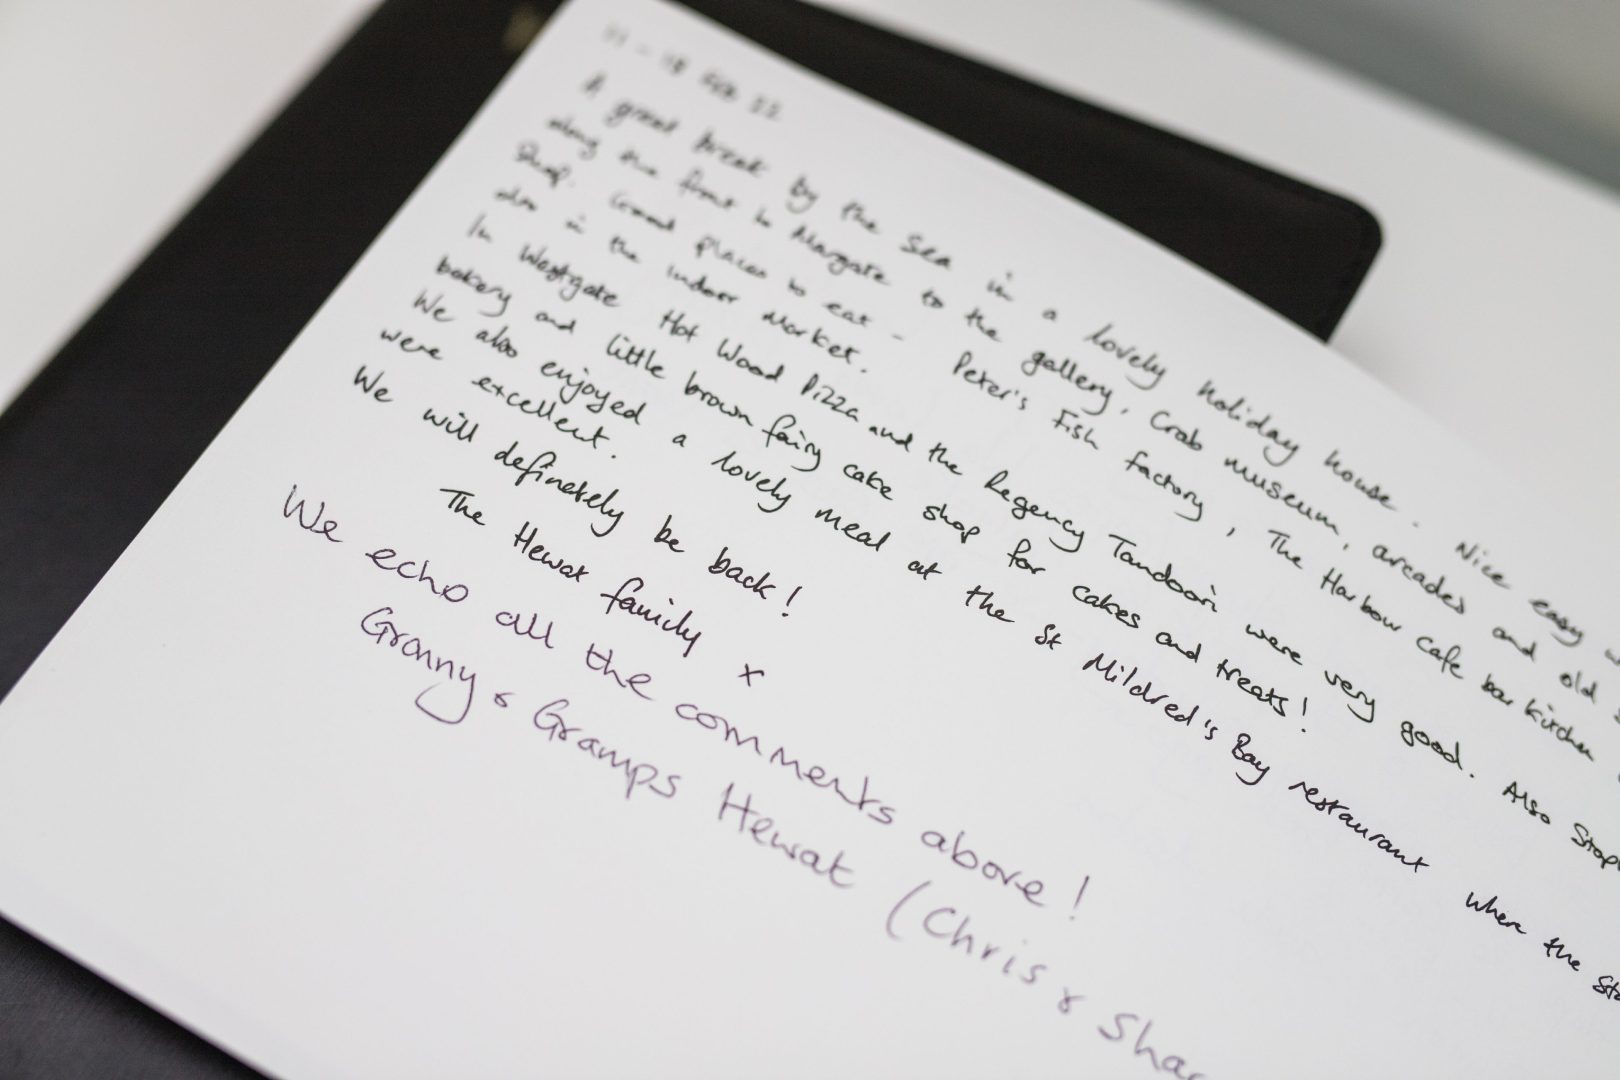 11 - 18 FEB 22
A great break by the sea in a lovely holiday house. Nice easy
along the front to Margate to the gallery, Crab museum, arcades and old
shop. Good places to eat - Peter's Fish factory, The Harbour cafe bar kitchen
also in the indoor Market.
In Westgate Hot Wood Pizza and the Regency Tandoori were very good. Also
bakery and little brown fairy cake shop for cakes and treats!
We also enjoyed a lovely meal at the St Mildred's Bay restaurant when the
were excellent.
We will definetely be back!
The Hewat family x
We echo all the comments above!
Granny & Gramps Hewat (Chris &